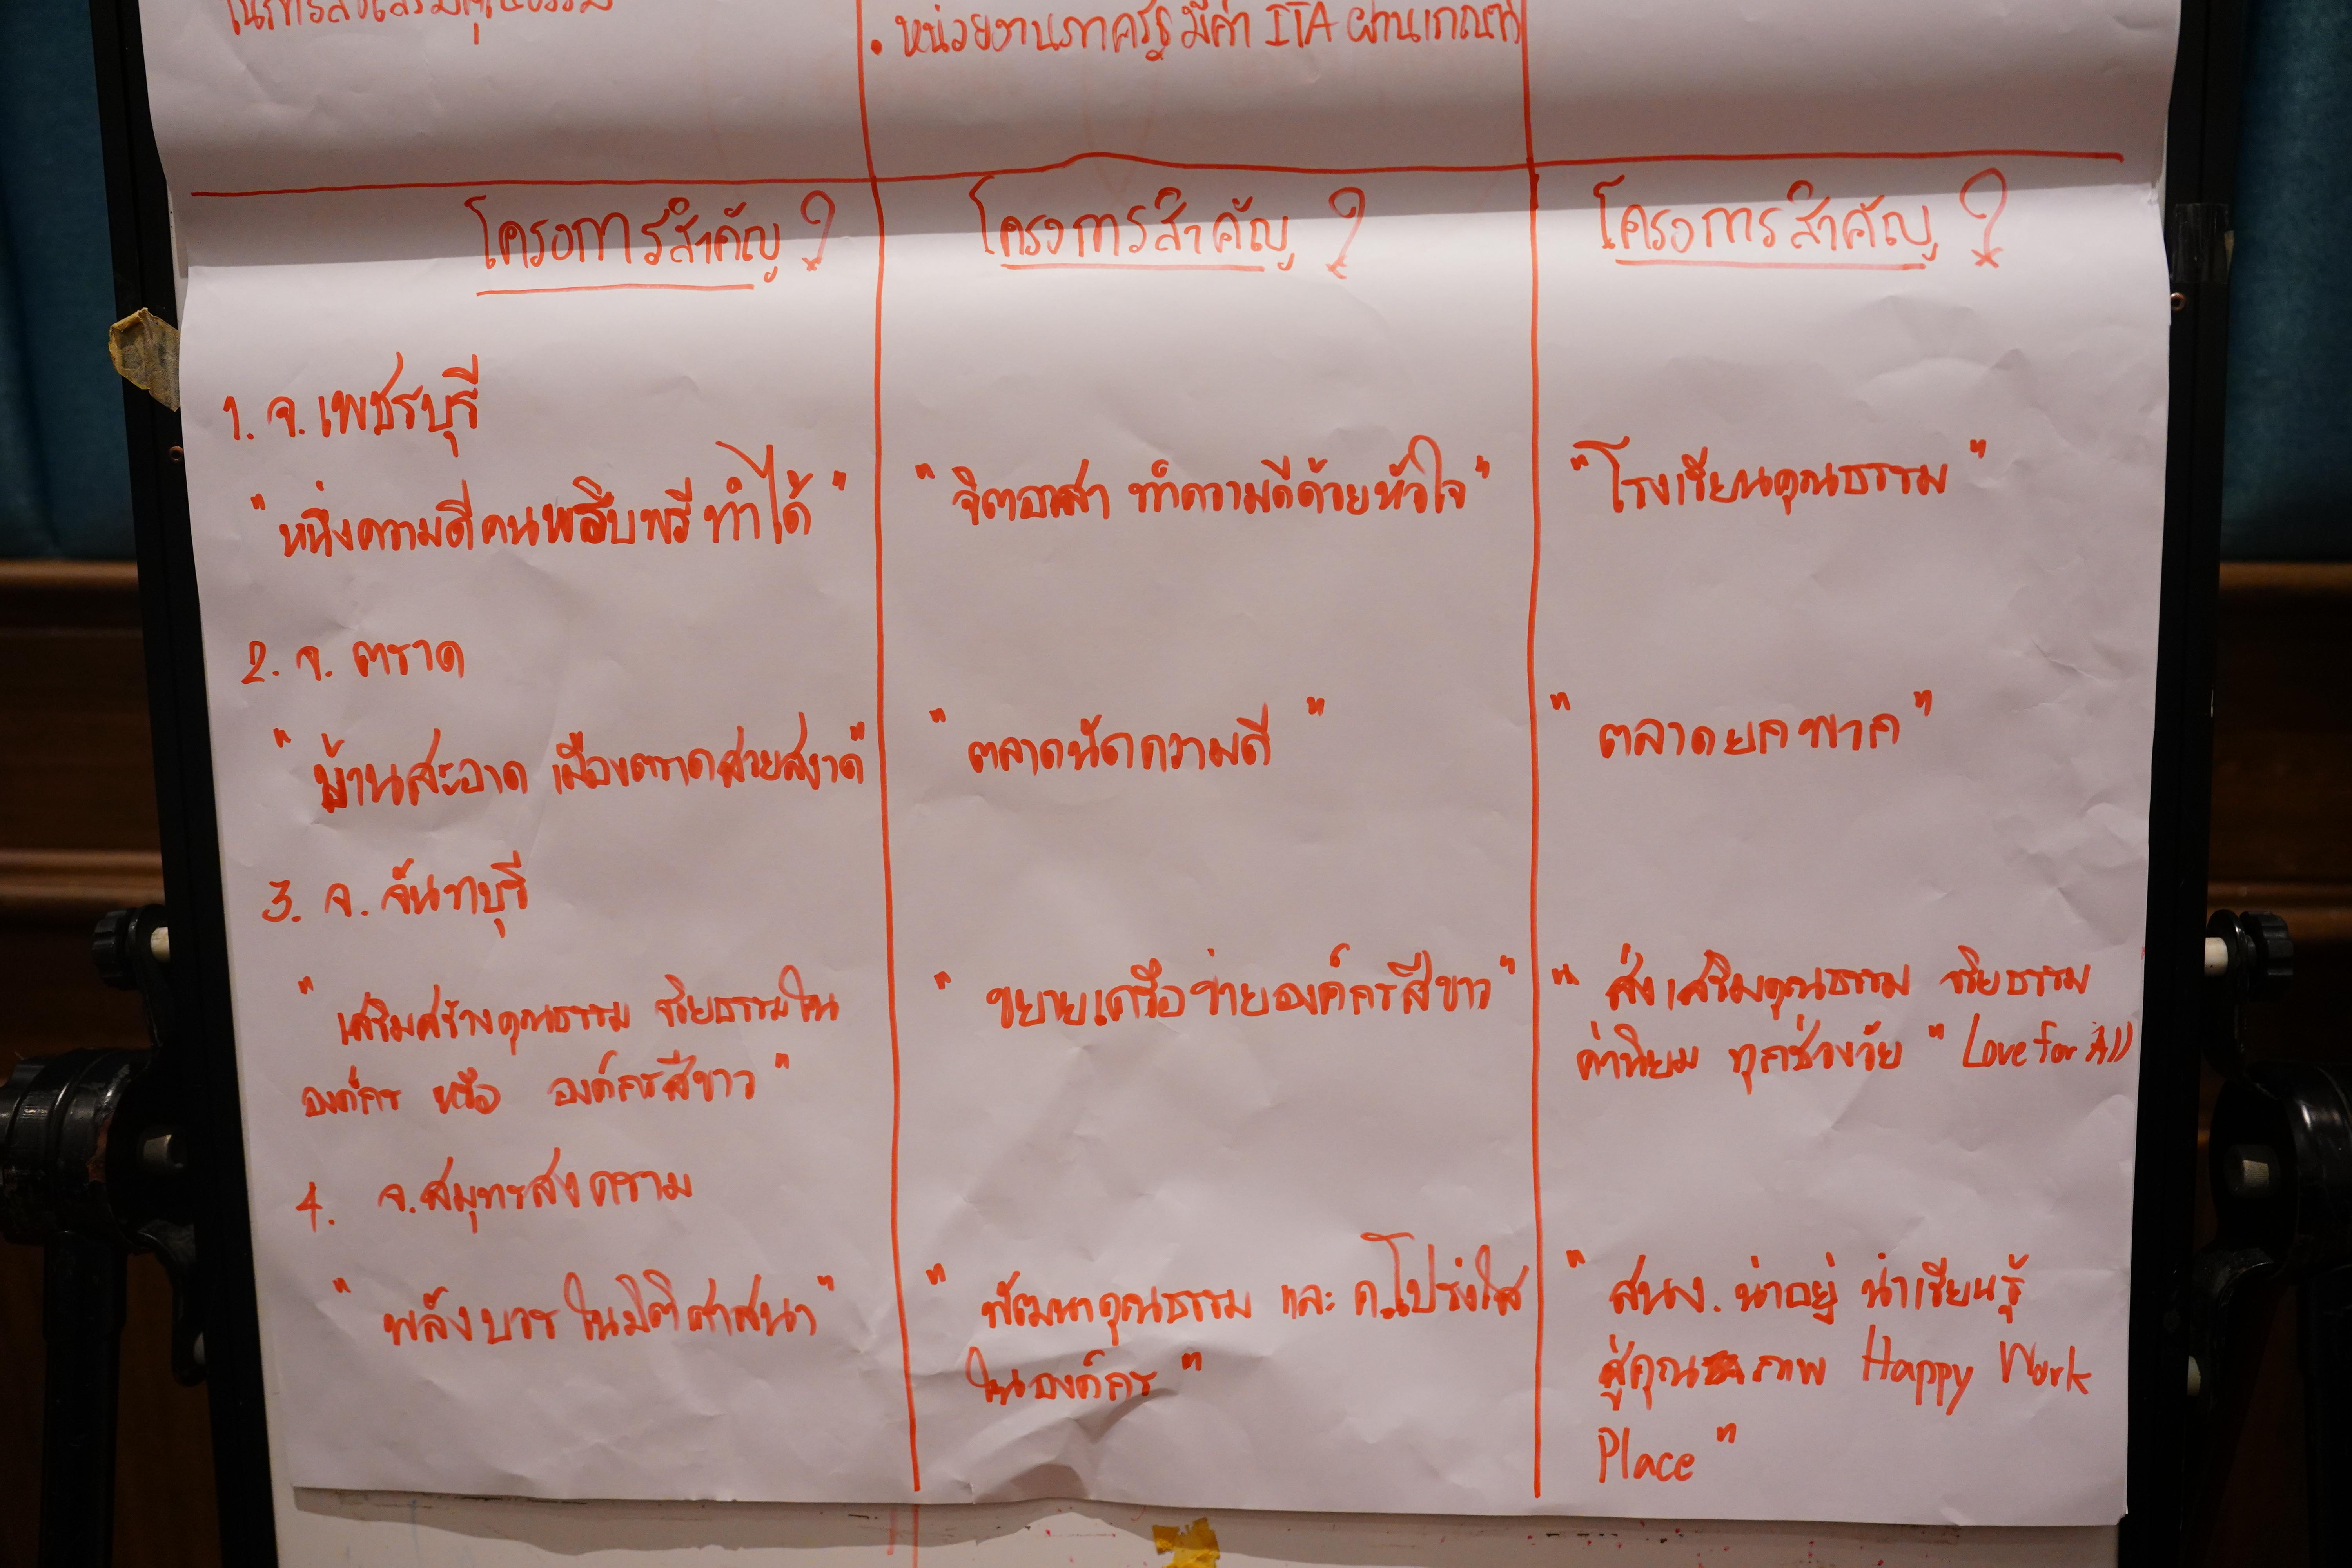 ในการส่งเสริมคุณธรรม
• หน่วยงานภาครัฐมีค่า ITA ผ่านเกณฑ์
โครงการสำคัญ ?
โครงการสำคัญ ?
โครงการสำคัญ ?
1. จ. เพชรบุรี
"หนึ่งความดีคนพริบพรีทำได้"
"จิตอาสา ทำความดีด้วยหัวใจ"
"โรงเรียนคุณธรรม"
2. จ. ตราด
"บ้านสะอาด เมืองตราดสวยสงาด"
"ตลาดนัดความดี"
"ตลาดยกพวก"
3. จ. จันทบุรี
"เสริมสร้างคุณธรรม จริยธรรมใน
องค์กร หรือ องค์กรสีขาว"
"ขยายเครือข่ายองค์กรสีขาว"
"ส่งเสริมคุณธรรม จริยธรรม
ค่านิยม ทุกช่วงวัย" Love for All
4. จ. สมุทรสงคราม
"พลังบวร ในมิติศาสนา"
"พัฒนาคุณธรรม และ ค.โปร่งใส
ในองค์กร"
"สนง. น่าอยู่ น่าเรียนรู้
สู่คุณภาพ Happy Work
Place"